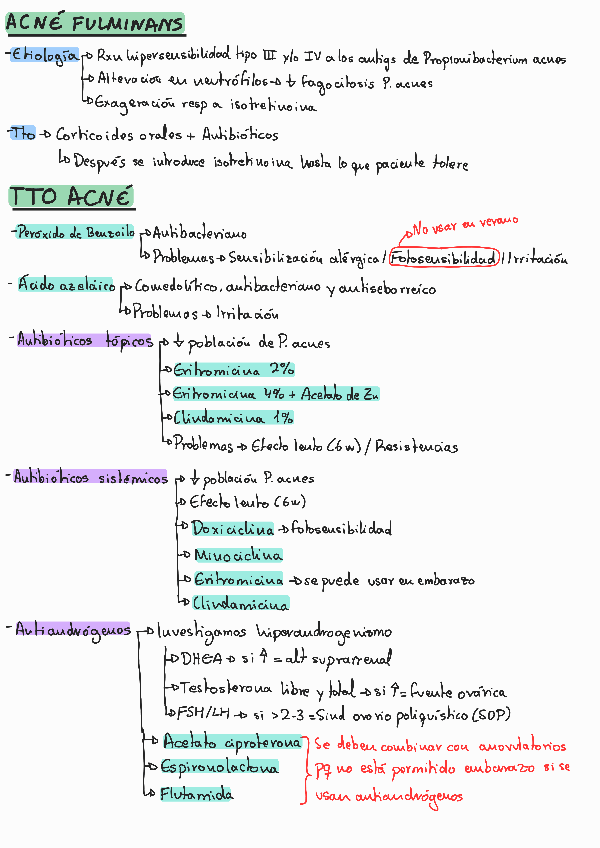 ACNÉ FULMINANS
- Etiología → Rxn hipersensibilidad tipo III y/o IV a los antigs de Propionibacterium acnes
→ Alteración en neutrófilos → ↓ fagocitosis P. acnes
→ Exageración resp a isotretinoina
- Tto → Corticoides orales + Antibióticos
↳ Después se introduce isotretinoina hasta lo que paciente tolere
TTO ACNÉ
No usar en verano
- Peróxido de Benzoilo → Antibacteriano
→ Problemas → Sensibilización alérgica / Fotosensibilidad / Irritación
- Ácido azeláico → Comedolítico, antibacteriano y antiseborreíco
→ Problemas → Irritación
- Antibióticos tópicos → ↓ población de P. acnes
→ Eritromicina 2%
→ Eritromicina 4% + Acetato de Zn
→ Clindamicina 1%
→ Problemas → Efecto lento (6w) / Resistencias
- Antibióticos sistémicos → ↓ población P. acnes
→ Efecto lento (6w)
→ Doxiciclina → fotosensibilidad
→ Minociclina
→ Eritromicina → se puede usar en embarazo
→ Clindamicina
- Antiandrógenos → Investigamos hiperandrogenismo
→ DHEA → si ↑ = alt suprarrenal
→ Testosterona libre y total → si ↑ = fuente ovárica
→ FSH/LH → si >2-3 = Sind ovario poliquístico (SOP)
→ Acetato ciproterona } Se deben combinar con anovulatorios
→ Espironolactona } pq no está permitido embarazo si se
→ Flutamida } usan antiandrógenos